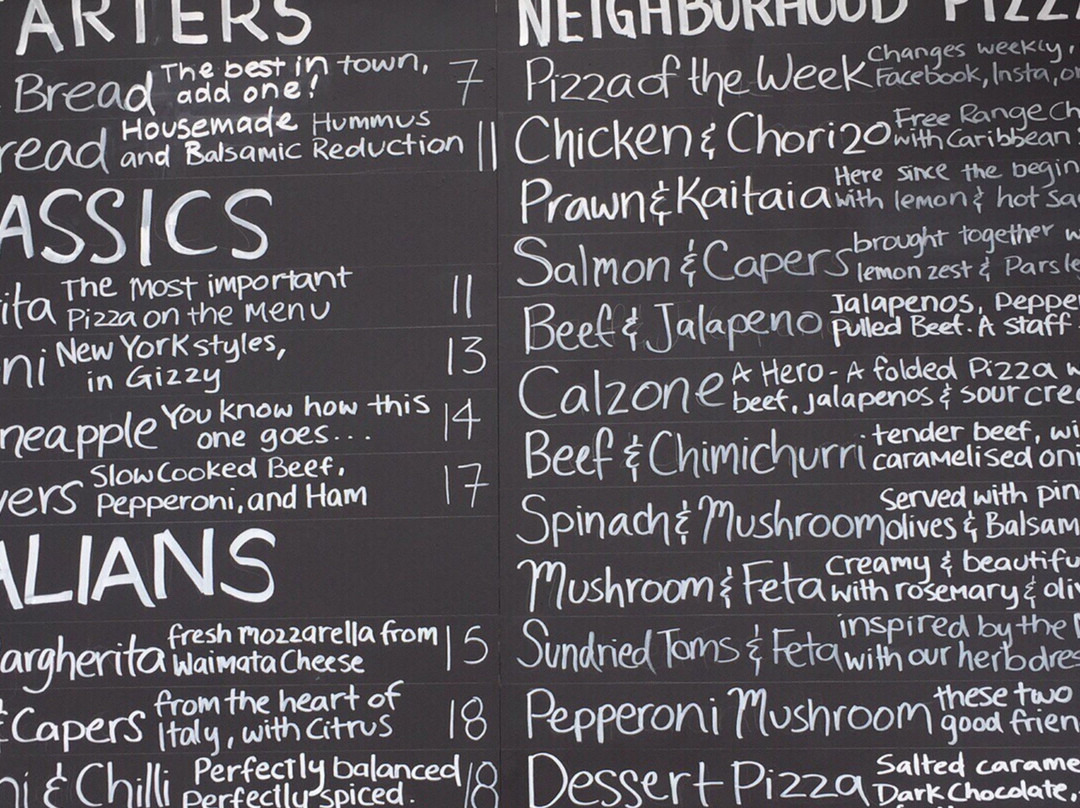 ARTERS
Bread The best in town, add one! 7
read Housemade Hummus and Balsamic Reduction 11
ASSICS
ita The Most important Pizza on the Menu 11
ni New York styles, in Gizzy 13
neapple You know how this one goes... 14
vers Slow Cooked Beef, Pepperoni, and Ham 17
ALIANS
argherita fresh mozzarella from Waimata Cheese 15
& Capers from the heart of Italy, with Citrus 18
ni & Chilli Perfectly balanced Perfectly spiced. 18
NEIGHBORHOOD PIZZ
Pizza of the Week Changes weekly, Facebook, Insta, or
Chicken & Chorizo Free Range Ch with Caribbean
Prawn & Kaitaia Here since the begin with lemon & hot sa
Salmon & Capers brought together w lemon zest & Parsle
Beef & Jalapeno Jalapenos, Peppe Pulled Beef. A staff
Calzone A Hero - A folded Pizza w beef, jalapenos & sour crea
Beef & Chimichurri tender beef, wi caramelised oni
Spinach & Mushroom Served with pin olives & Balsam
Mushroom & Feta Creamy & beautifu with rosemary & oliv
Sundried Toms & Feta inspired by the with our herb dres
Pepperoni Mushroom these two good frien
Dessert Pizza Salted carame Dark Chocolate,